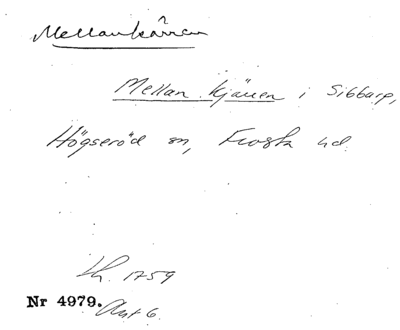 Mellankärren
Mellan kjärren i Sibbarp,
Högseröd sn, Frosta hd
Lh. 1759
Nr 4979. Akt 6.